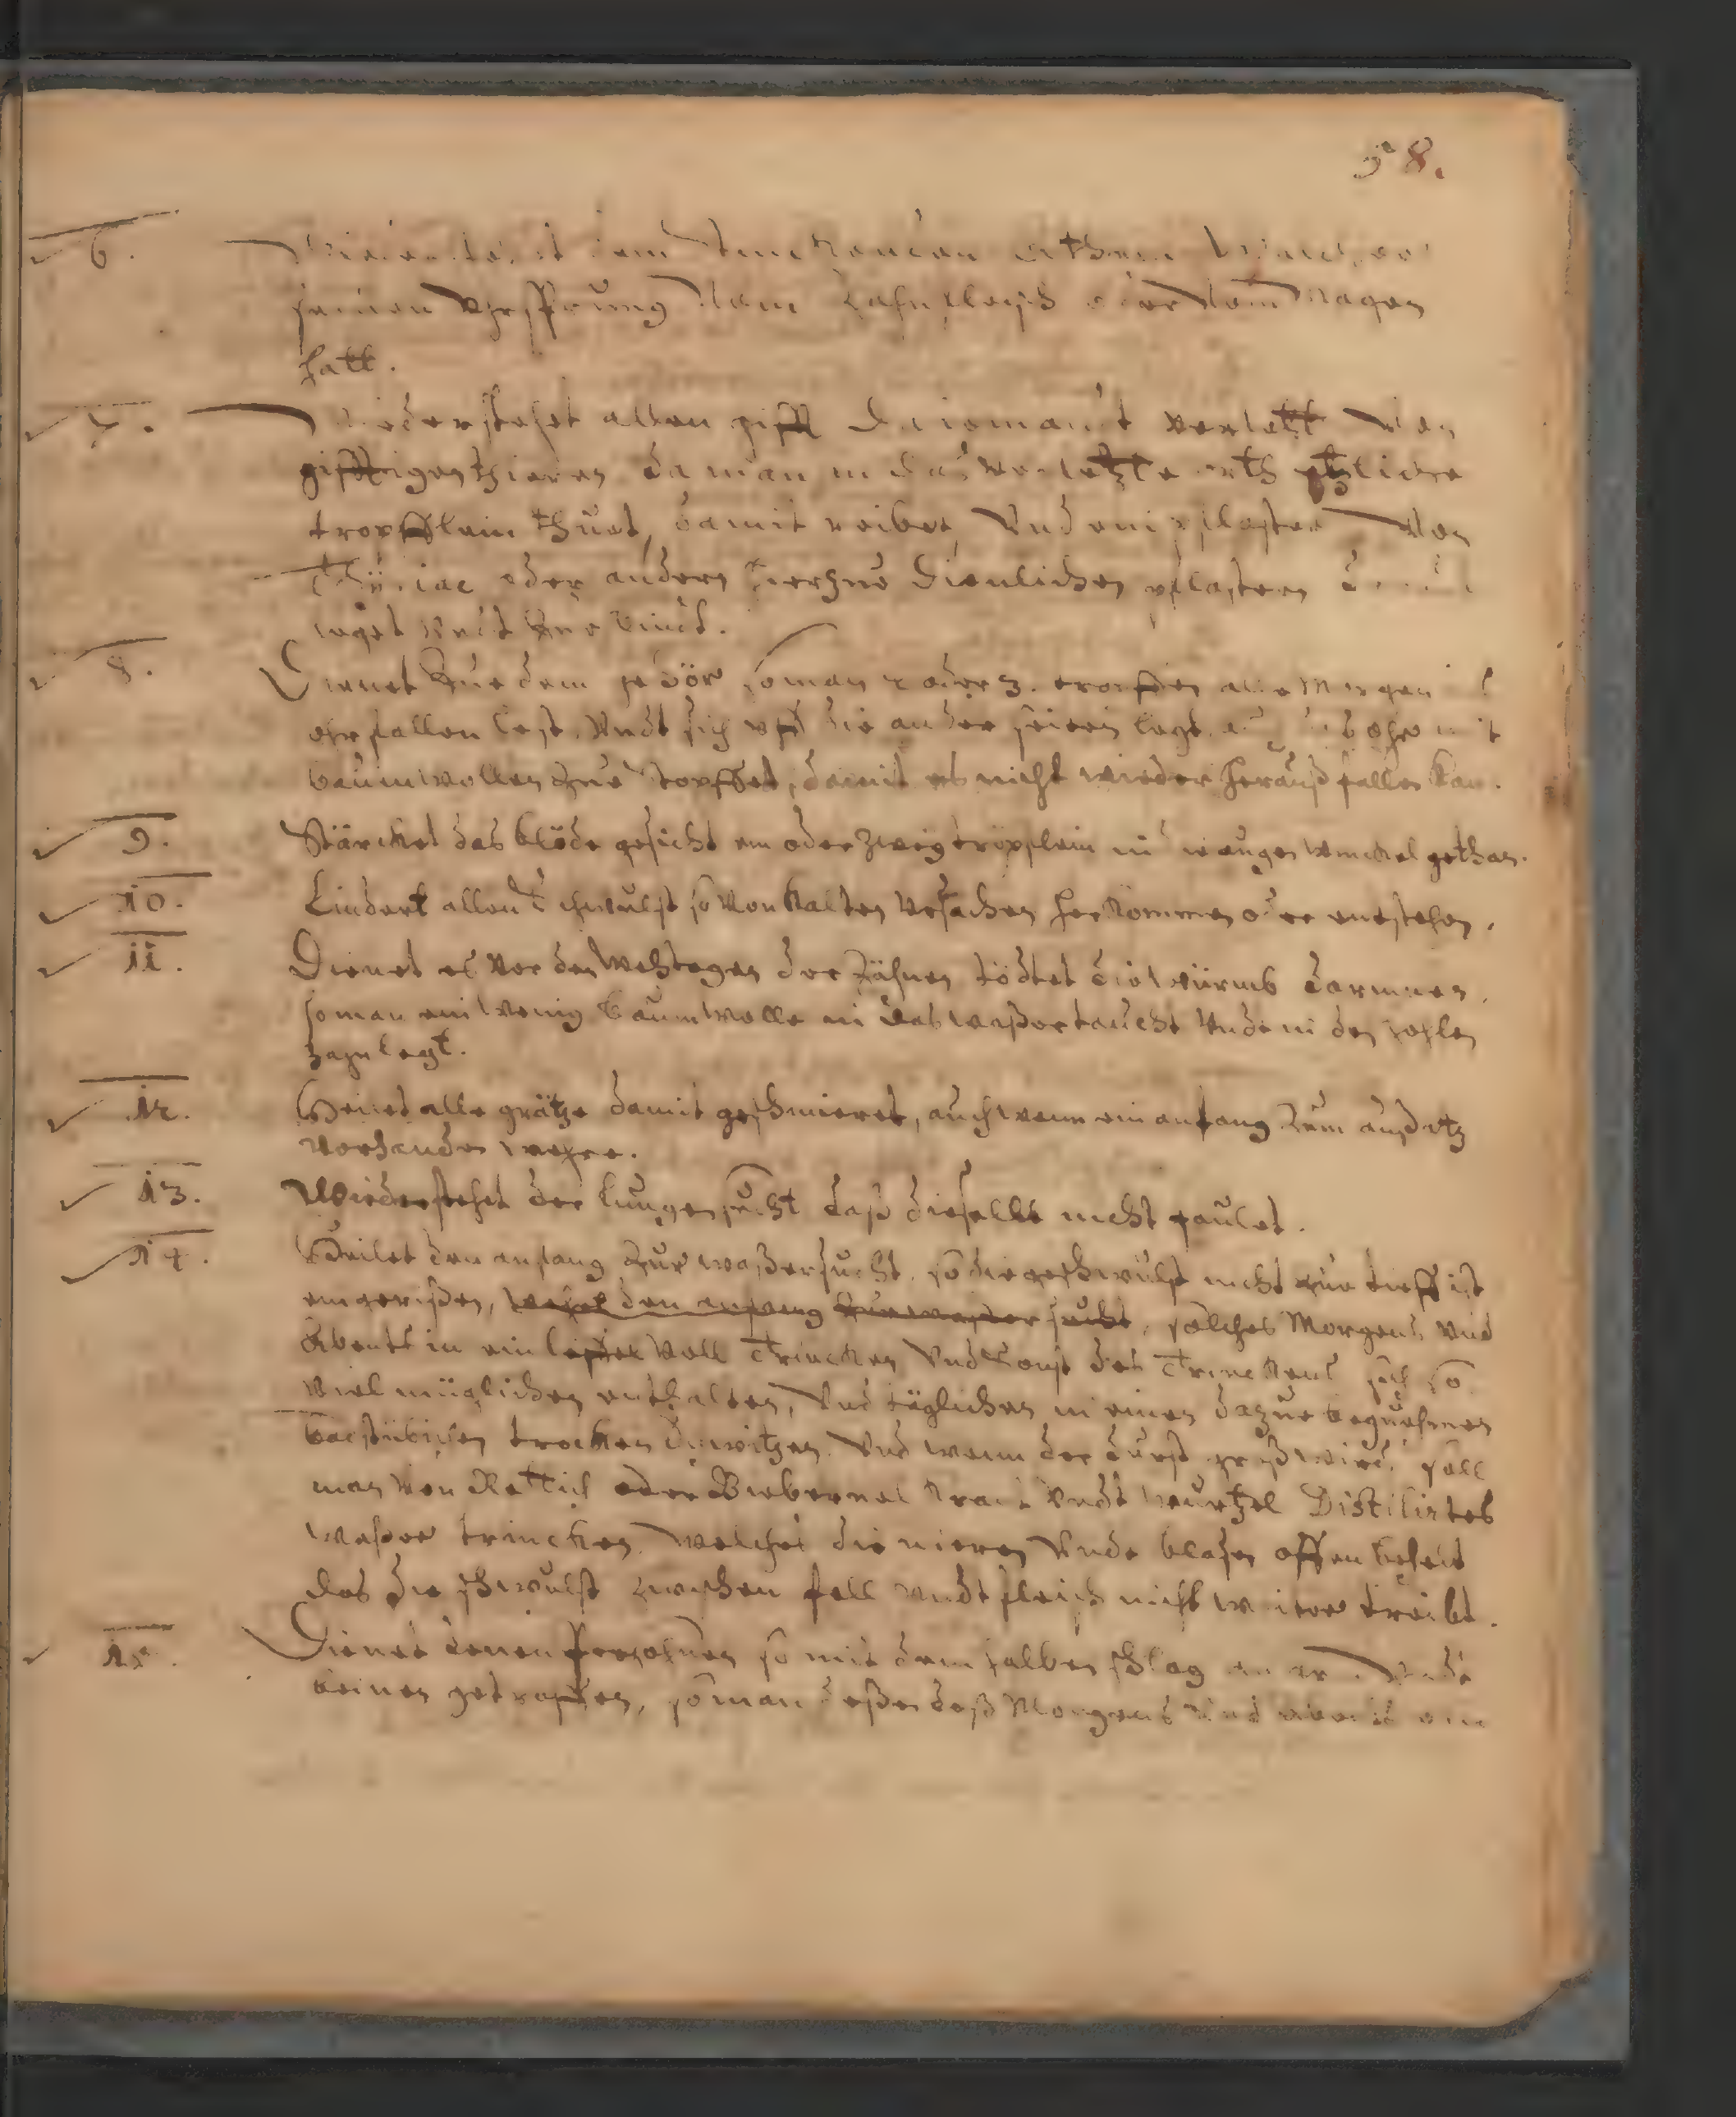 58.
6. dem stinckenden Athem welcher
seinen Vhrsprung vom Zahnfleisch oder vom Magen
hatt.
7. Wiederstehet allen gifft Da iemandt verletzt von
gifftigen thieren da man in das verletzte orth etzliche
tropfflein thuet, damit reibet, Vnd ein pflaster von
Thÿriac oder andern hierzue dienlichen pflastern
leget vndt zue bindt.
8. Dienet Zue dem gehör so man 2 oder 3. tropffen alle Morgen
ohr fallen lest, Vndt sich vff die ander seiten legt, ohr mit
baumwollen zue stopffet, damit es nicht wieder herauß fallen kan.
9. Stärcket das blöde gesicht ein oder zweÿ tröpflein in augen winckel gethan.
10. Lindert allen schwulst so von kalten Vrsachen her kommen oder entstehen.
11. Dienet es vor den Wehtagen der Zähnen tödtet die würmb darinnen,
so man ein wenig baumwolle in das waßer taucht Vnde in den hohlen
zahn legt.
12. Heilet alle grätze damit geschmieret, auch wenn ein anfang Zum außsatz
Vorhanden wehre.
13. Wiederstehet der Lungensucht daß dieselbe nicht faulet.
14. Heilet den anfang Zur waßersucht, so die geschwulst nicht zue tieff ist
eingerißen, den anfang zur waßer sucht, solches Morgens Vnd
Abents in ein leffel voll Trincken Vnd sonst deß Trinckens sich so
Viel müglichen enthalten, Vnd täglichen in einen dazue bequehmen
badstübichen trocken schwitzen. Vnd wenn der durst groß wird, soll
man von Rettich oder Biebernel kraut Vndt wurtzel Distilirtes
waßer trincken, welches die nieren Vnde blasen offen behelt
das die schwulst zwischen fell Vndt fleisch nicht weiter treibt.
15. Dienet denen persohnen so mit dem halben schlag an Vnde
beinen getroffen, so man deßen deß Morgens Vnd abents ein